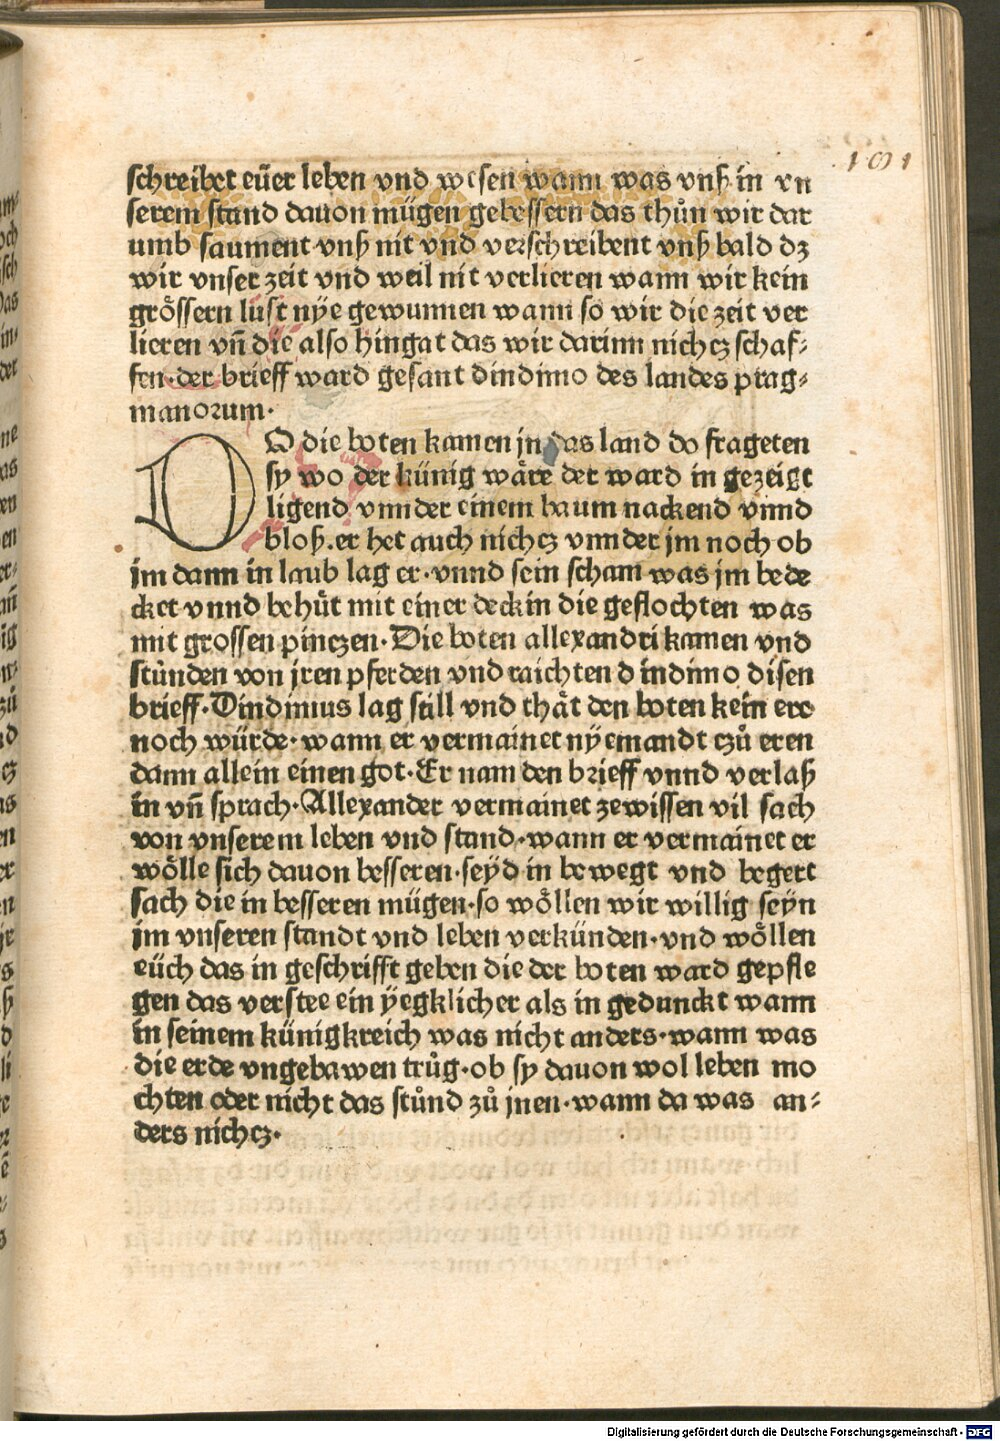 101
schreibet eüer leben vnd wesen wann was vnß in vn
serem stand dauon mügen gebessern das thůn wir dar
umb saument vnß nit vnd verschreibent vnß bald dz
wir vnser zeit vnd weil nit verlieren wann wir kein
grössern lust nÿe gewunnen wann so wir die zeit ver
lieren vñ die also hingat das wir darinn nichcz schaf⸗
fen·der brieff ward gesant dindimo des landes prag⸗
manorum·
DO die boten kamen jn das land do frageten
sy wo der künig wäre der ward in gezeigt
ligend vnnder einem baum nackend vnnd
bloß.er het auch nichcz vnnder jm noch ob
jm dann in laub lag er·vnnd sein scham was jm bede
cket vnnd behüt mit einer deckin die geflochten was
mit grossen pinczen·Die boten allexandri kamen vnd
stůnden von jren pferden vnd raichten dindimo disen
brieff·Dindimus lag still vnd thät den boten kein ere
noch würde·wann er vermainet nÿemandt czů eren
dann allein einen got·Er nam den brieff vnnd verlaß
in vñ sprach·Allexander vermainet zewissen vil sach
von vnserem leben vnd stand·wann er vermainet er
wölle sich dauon besseren·seÿd in bewegt vnd begert
sach die in besseren mügen·so wöllen wir willig seÿn
jm vnseren standt vnd leben verkünden·vnd wöllen
eüch das in geschrifft geben die der boten ward gepfle
gen das verstee ein ÿegklicher als in gedunckt wann
in seinem künigkreich was nicht anders·wann was
die erde vngebawen trůg·ob sy dauon wol leben mo
chten oder nicht das stůnd zů jnen·wann da was an⸗
ders nichcz·
Digitalisierung gefördert durch die Deutsche Forschungsgemeinschaft - DFG